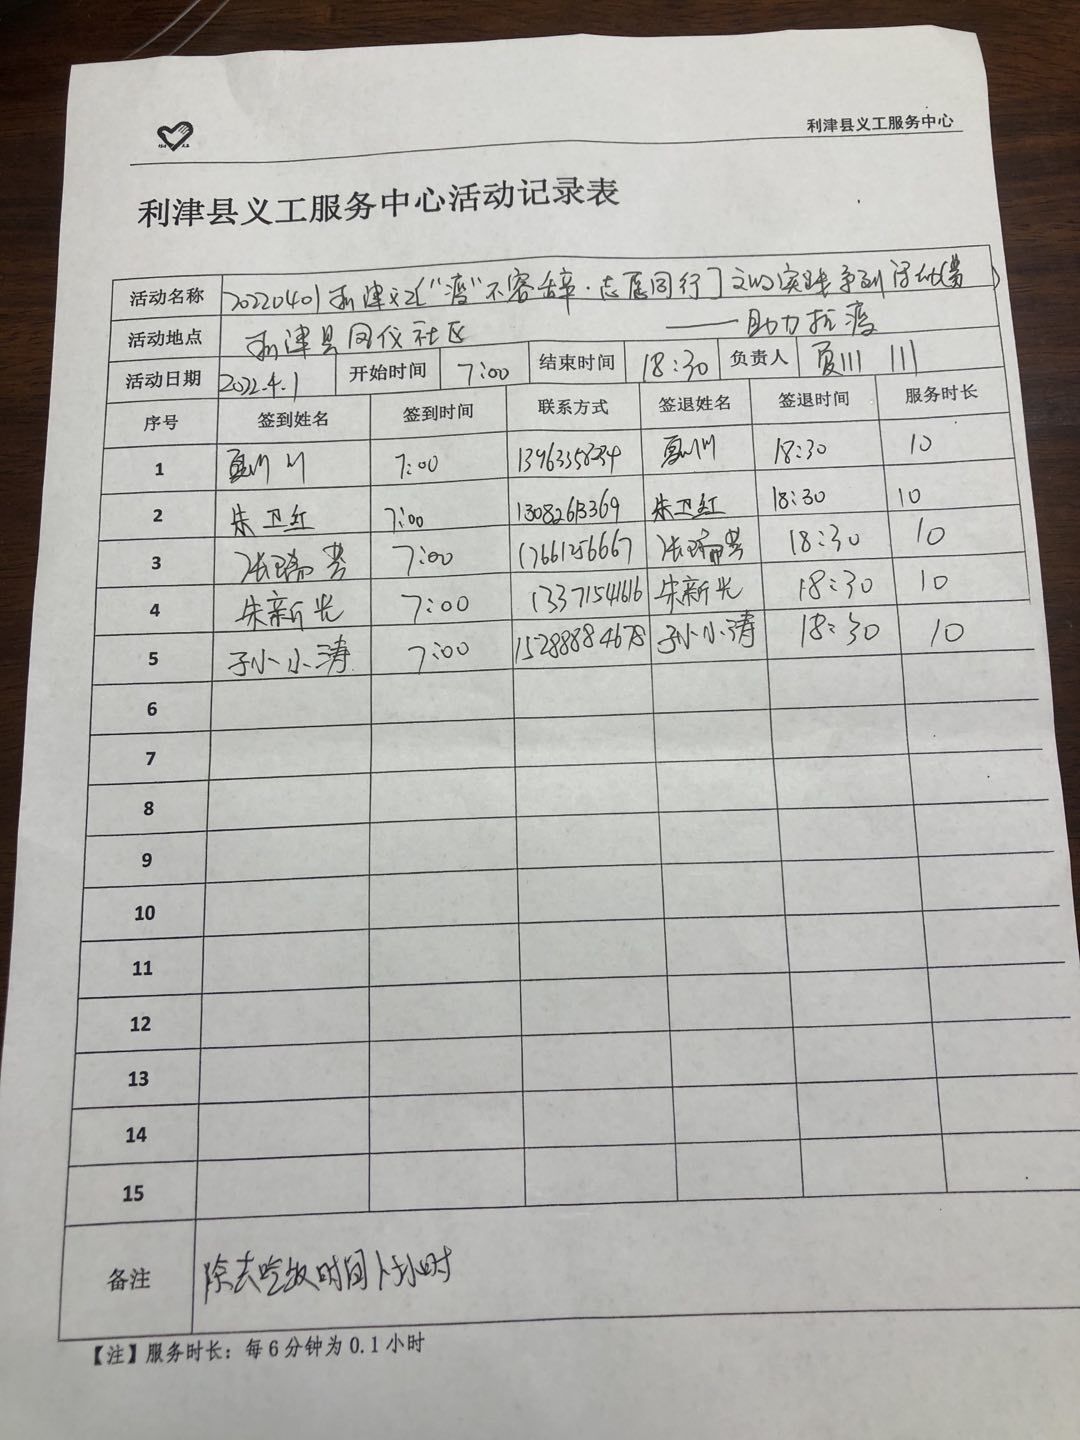 利津县义工服务中心
利津县义工服务中心活动记录表
活动名称 20220401利津义工["疫"不容辞·志愿同行]文明实践系列活动
——助力抗疫
活动地点 利津县凤仪社区
活动日期 2022.4.1 开始时间 7:00 结束时间 18:30 负责人
序号 签到姓名 签到时间 联系方式 签退姓名 签退时间 服务时长
1 7:00 18:30 10
2 朱卫红 7:00 朱卫红 18:30 10
3 张瑞芳 7:00 17661256667 张瑞芳 18:30 10
4 朱新光 7:00 13371541616 朱新光 18:30 10
5 孙小涛 7:00 15288884678 孙小涛 18:30 10
6
7
8
9
10
11
12
13
14
15
备注 除去吃饭时间1.5小时
【注】服务时长：每6分钟为0.1小时